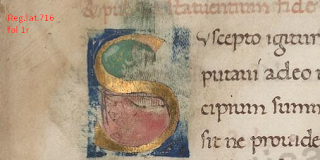 Reg.lat.716
fol 1r
statuentium fide
Suscepto igitur
putavi adeo
cipium summ
sit ne provide